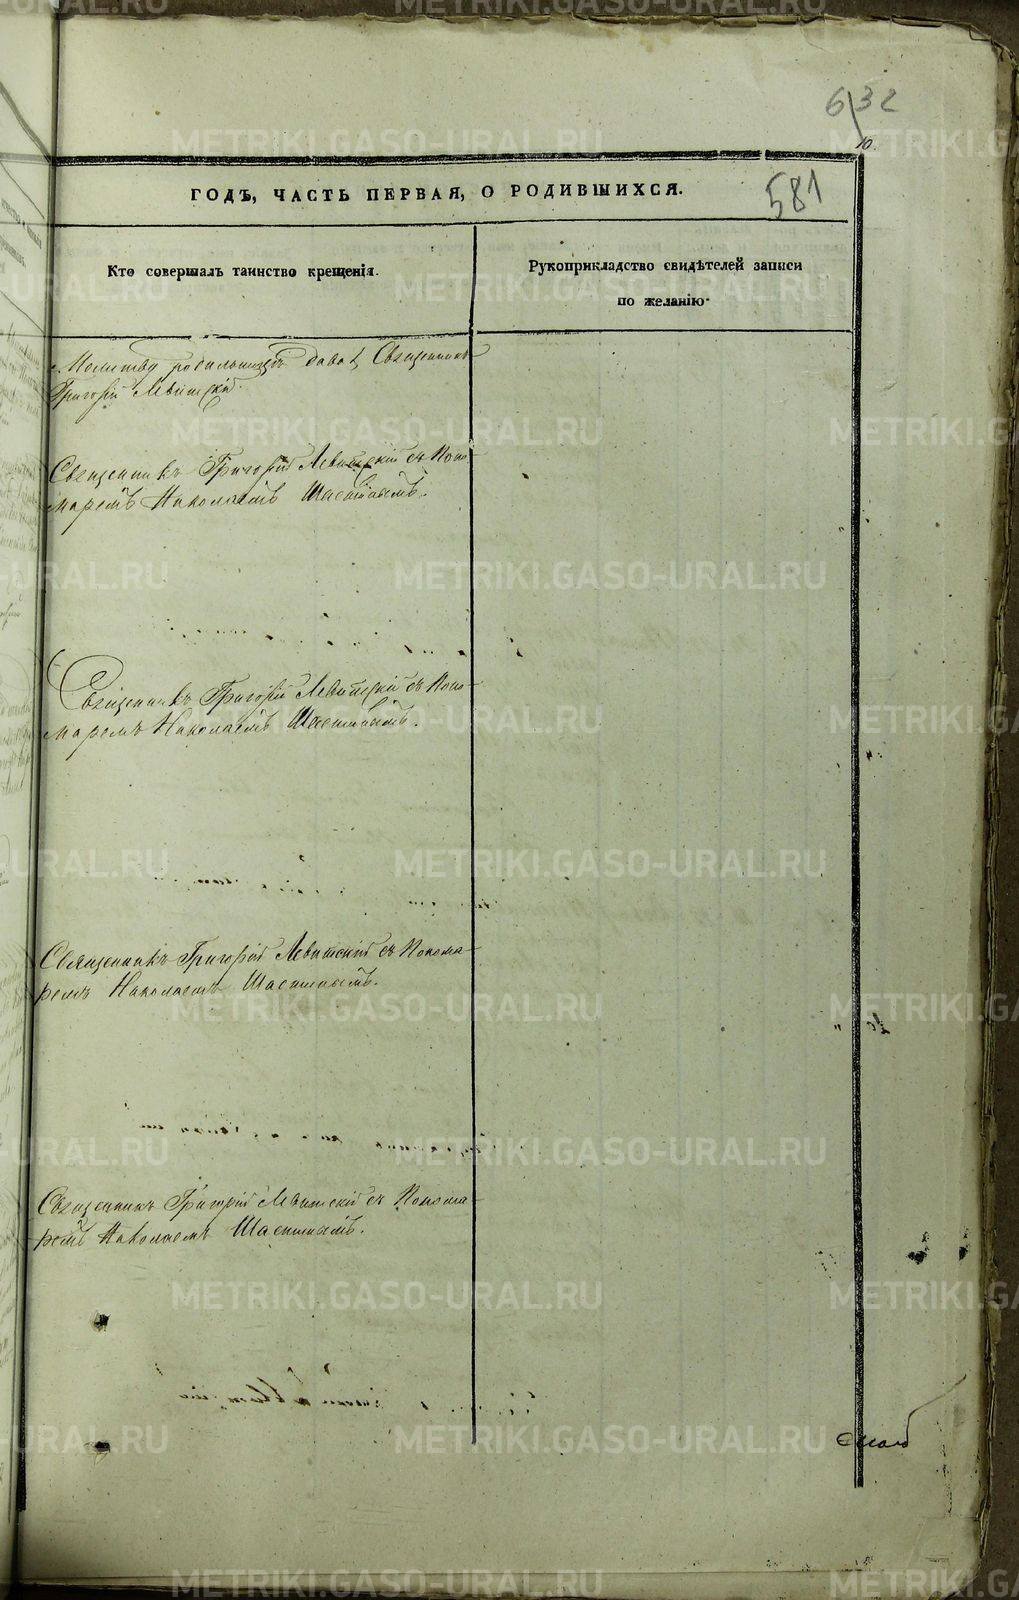 632
10.
ГОДЪ, ЧАСТЬ ПЕРВАЯ, О РОДИВШИХСЯ.
581
Кто совершалъ таинство крещенія.
Рукоприкладство свидѣтелей записи
по желанію.
Молитву родильницѣ давалъ Священникъ
Григорій Левитскій.
Священникъ Григорій Левитскій съ Поно-
маремъ Николаемъ Шастнымъ.
Священникъ Григорій Левитскій съ Поно-
маремъ Николаемъ Шастнымъ.
Священникъ Григорій Левитскій съ Понома-
ремъ Николаемъ Шастнымъ.
Священникъ Григорій Левитскій съ Понома-
ремъ Николаемъ Шастнымъ.
METRIKI.GASO-URAL.RU